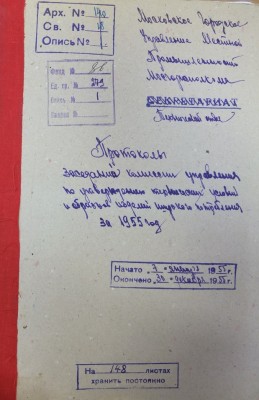 Арх. №
Св. № 18
Опись №
Фонд №
Ед. хр. № 279
Опись № 1
Московское Городское
Управление
Промышленности
Мосгорисполкома
Протоколы
заседаний комиссии управления
по утверждению технических условий
и образцов изделий широкого потребления
за 1955 год
Начато 3 января 1955 г.
Окончено 30 декабря 1955 г.
На 148 листах
хранить постоянно